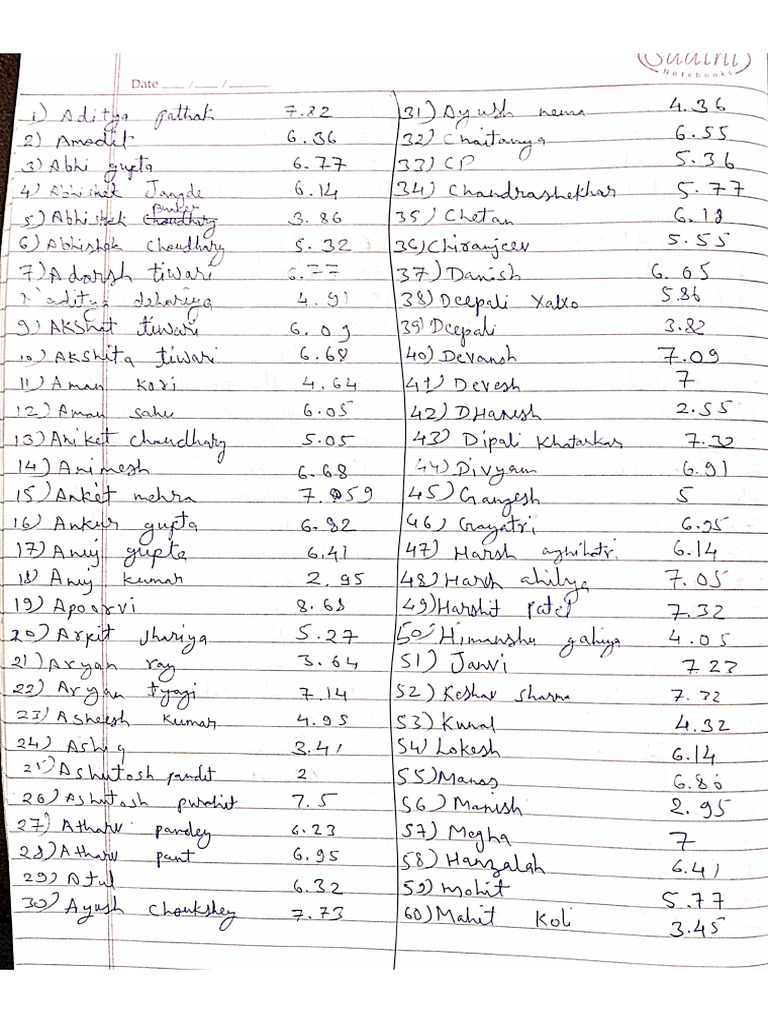 Saathi
Notebooks
Date ___ / ___ / ___
1) Aditya pathak 7.82
2) Amodit 6.36
3) Abhi gupta 6.77
4) Abhishek Jangde 6.14
5) Abhishek 3.86
6) Abhishek Choudhary 5.32
7) Adarsh tiwari 6.77
aditya dehariya 4.91
9) AKShat tiwari 6.09
10) AKShita tiwari 6.68
11) Aman kori 4.64
12) Aman sahu 6.05
13) Aniket chaudhary 5.05
14) Animesh 6.68
15) Anket mehra 7.59
16) Ankur gupta 6.82
17) Anuj gupta 6.41
18) Anuj kumar 2.95
19) Apoorvi 8.68
20) Arpit Jhariya 5.27
21) Aryan ray 3.64
22) Aryan tyagi 7.14
23) Asheesh kumar 4.95
24) Ashiq 3.41
25) Ashutosh pandit 2
26) Ashutosh purohit 7.5
27) Atharv pandey 6.23
28) Atharv pant 6.95
29) Atul 6.32
30) Ayush Chouksey 7.73
31) Ayush nema 4.36
32) Chaitanya 6.55
33) CP 5.36
34) Chandrashekhar 5.77
35) Chetan 6.18
36) Chiranjeev 5.55
37) Danish 6.05
38) Deepali Xalxo 5.86
39) Deepali 3.82
40) Devansh 7.09
41) Devesh 7
42) DHanesh 2.55
43) Dipali Khatarkar 7.32
44) Divyam 6.91
45) Gangesh 5
46) Gayatri 6.95
47) Harsh agnihotri 6.14
48) Harsh ahilya 7.05
49) Harshit patel 7.32
50) Himanshu 4.05
51) Janvi 7.23
52) Keshav sharma 7.32
53) Kunal 4.32
54) Lokesh 6.14
55) Manas 6.86
56) Manish 2.95
57) Megha 7
58) Hanzalah 6.41
59) mohit 5.77
60) Mahit Koli 3.45